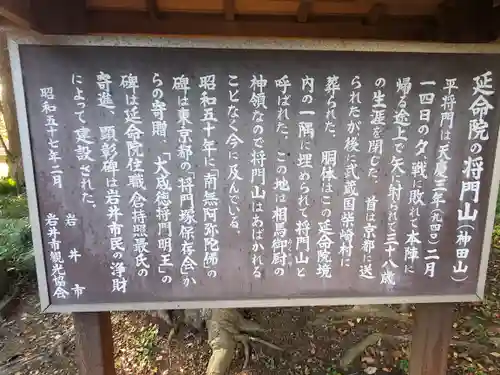 延命院の将門山(神田山)
平将門は天慶三年(九四〇)二月
一四日の夕、戦に敗れて本陣に
帰る途上で矢に射られて三十八歳
の生涯を閉じた。首は京都に送
られたが後に武蔵国柴崎村に
葬られた。胴体はこの延命院境
内の一隅に埋められて将門山と
呼ばれた。この地は相馬御厨の
神領なので将門山はあばかれる
ことなく今に及んでいる。
昭和五十年に「南無阿弥陀佛」の
碑は東京都の「将門塚保存会」か
らの寄贈、「大威徳将門明王」の
碑は延命院住職倉持照最氏の
寄進、顕彰碑は岩井市民の浄財
によって建設された。
昭和五十七年二月
岩井市
岩井市観光協会